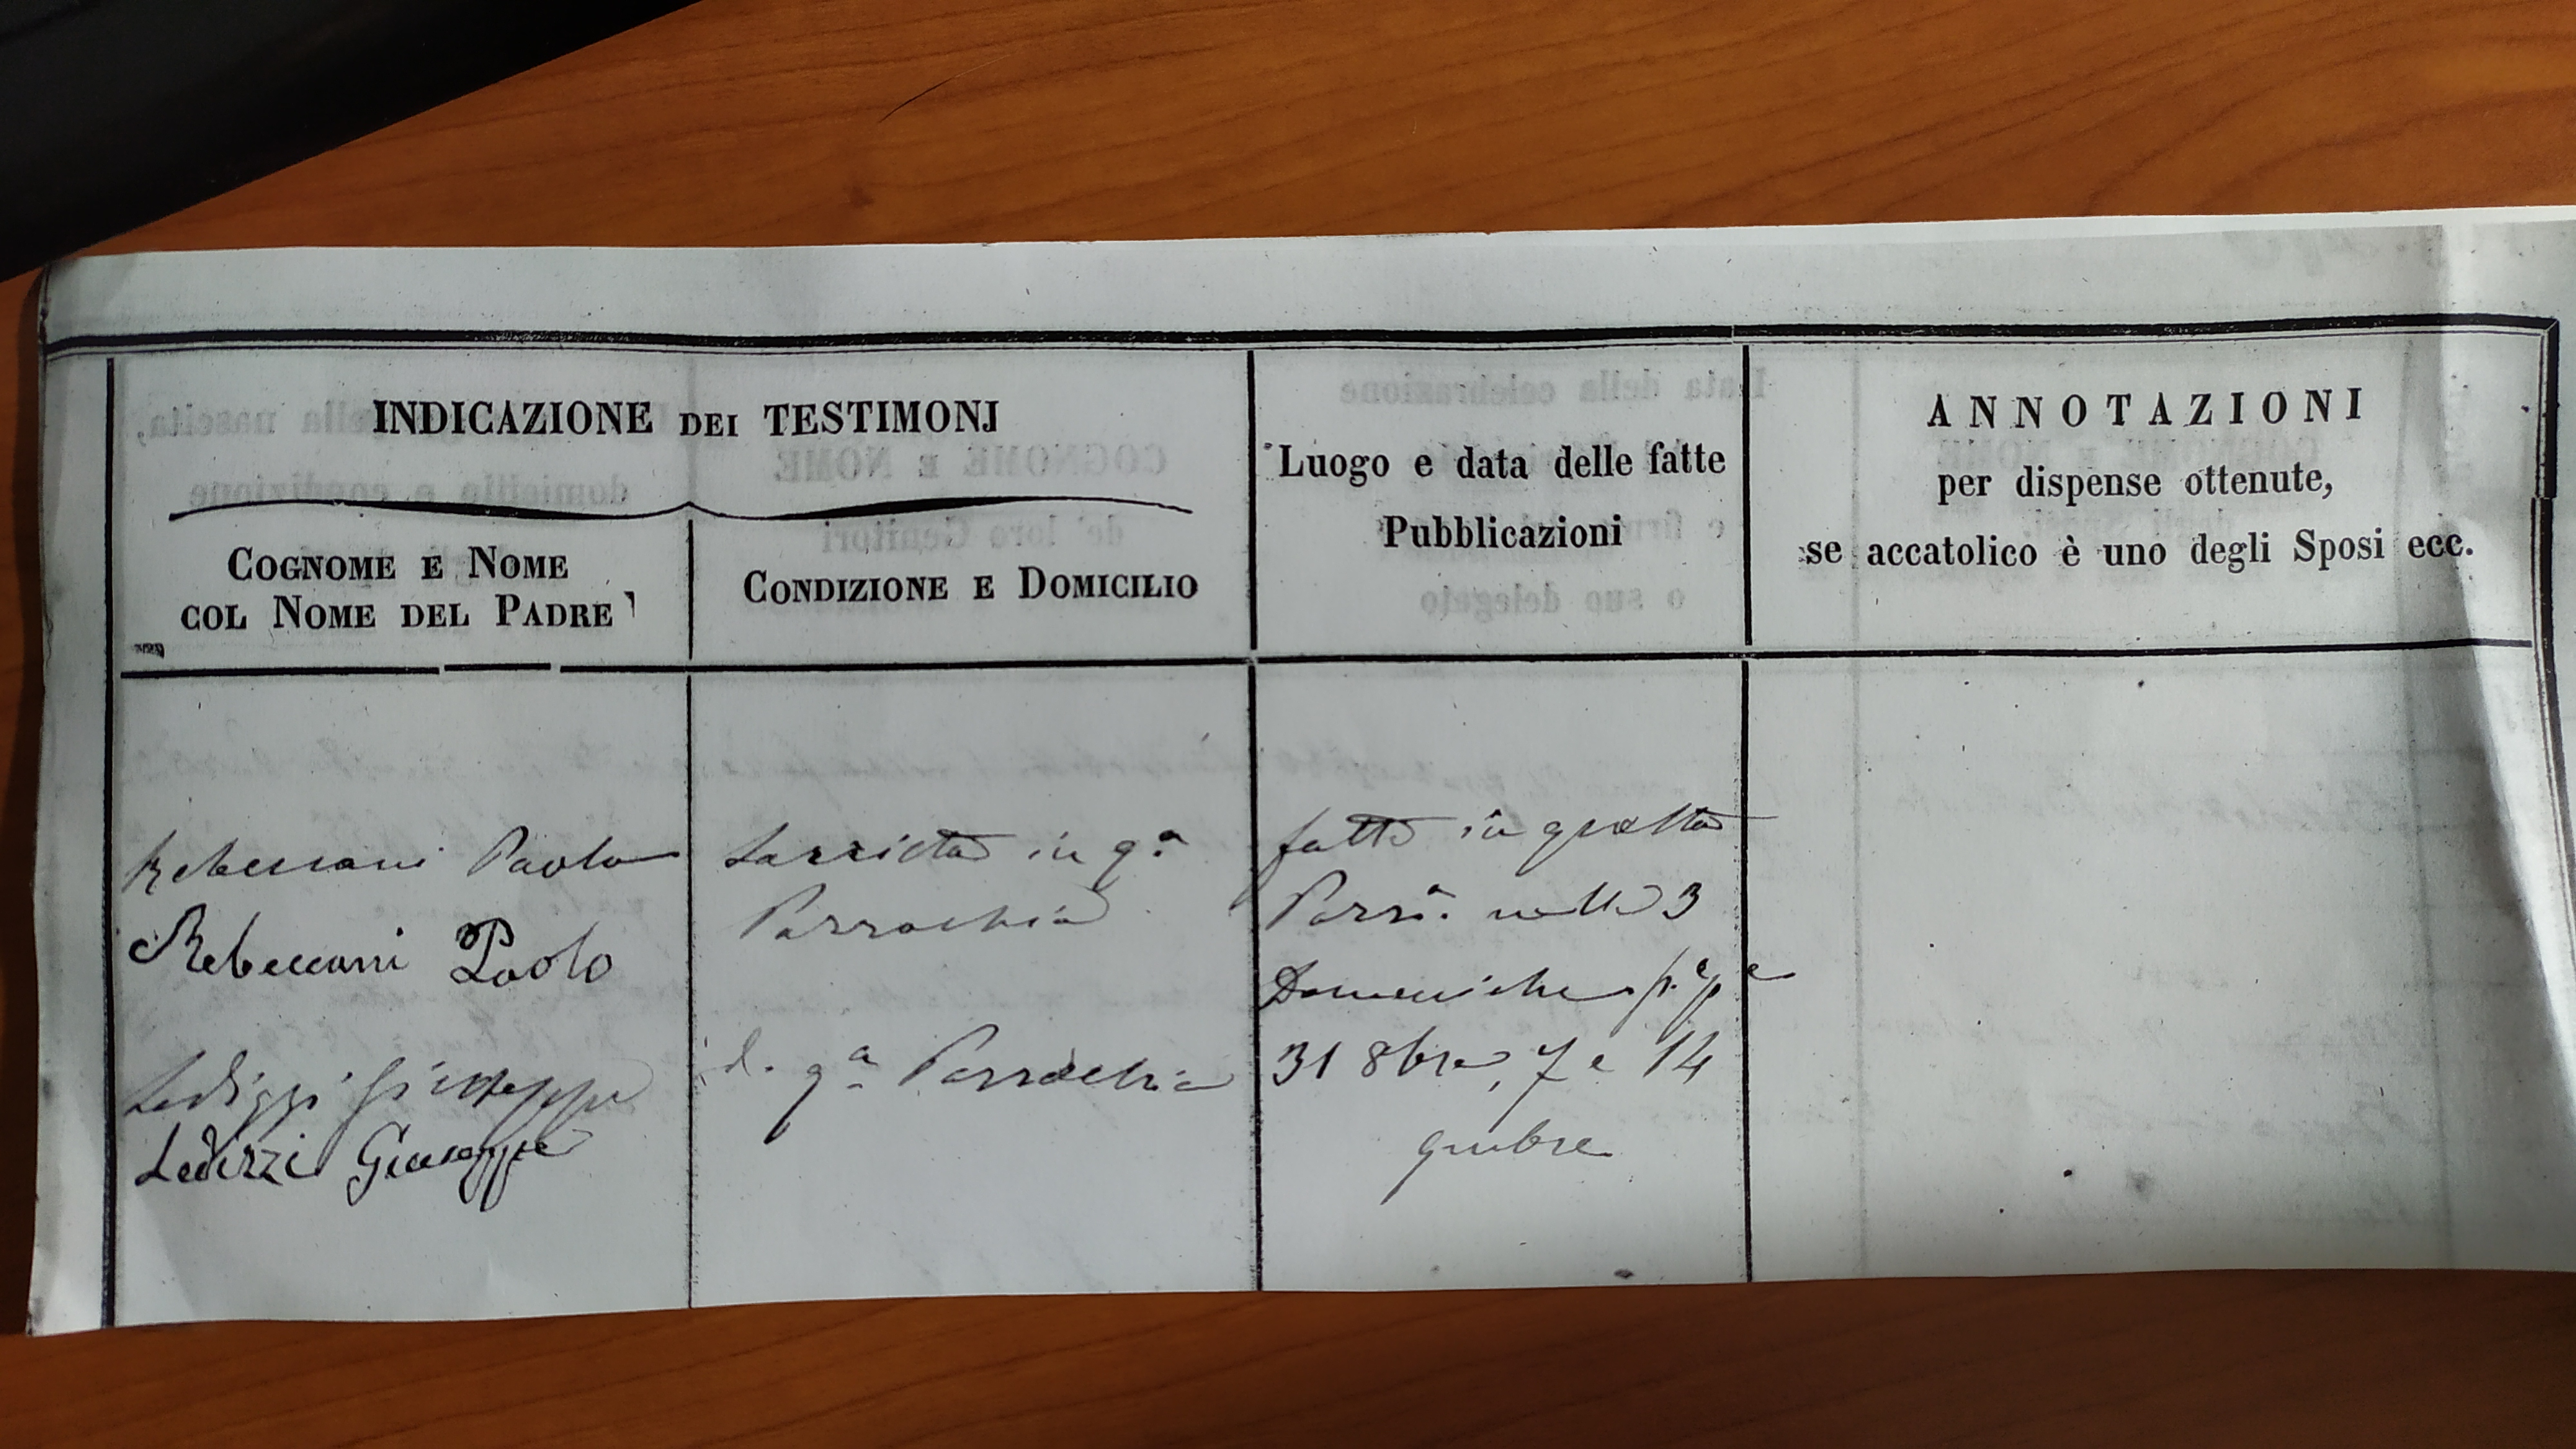 INDICAZIONE DEI TESTIMONJ
COGNOME E NOME
COL NOME DEL PADRE
CONDIZIONE E DOMICILIO
Luogo e data delle fatte
Pubblicazioni
ANNOTAZIONI
per dispense ottenute,
se accatolico è uno degli Sposi ecc.
Rebeccani Paolo
Rebeccani Paolo
Ledizzi Giuseppe
Ledizzi Giuseppe
in qᵃ
Parrochia
qᵃ Parrochia
fatte in questa
Parrᵃ. nelle 3
Domeniche
31 8bre, 7 e 14
9mbre